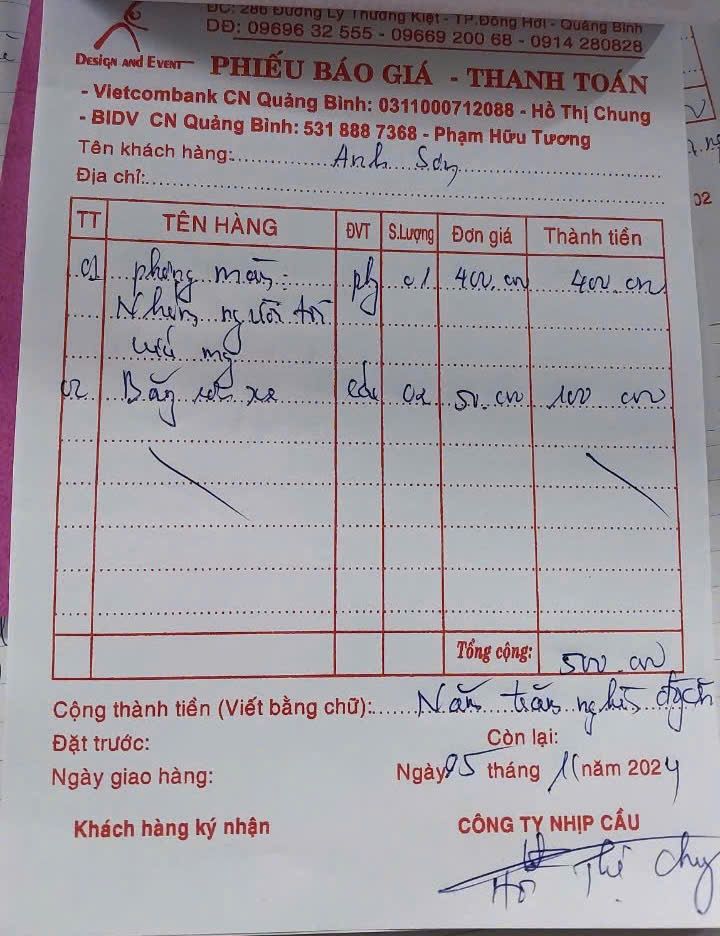 ĐC: 286 Đường Lý Thường Kiệt - TP.Đồng Hới - Quảng Bình
DĐ: 09696 32 555 - 09669 200 68 - 0914 280828
DESIGN AND EVENT
PHIẾU BÁO GIÁ - THANH TOÁN
- Vietcombank CN Quảng Bình: 0311000712088 - Hồ Thị Chung
- BIDV CN Quảng Bình: 531 888 7368 - Phạm Hữu Tương
Tên khách hàng: Anh Sơn
Địa chỉ:
TT TÊN HÀNG ĐVT S.Lượng Đơn giá Thành tiền
01 phông màn: 01 400.000 400.000
Những người tôi
02 Băng xe 02 50.000 100 000
Tổng cộng: 500.000
Cộng thành tiền (Viết bằng chữ): Năm trăm nghìn đồng
Đặt trước: Còn lại:
Ngày giao hàng: Ngày 05 tháng 11 năm 2024
Khách hàng ký nhận CÔNG TY NHỊP CẦU
Hồ Thị Chung